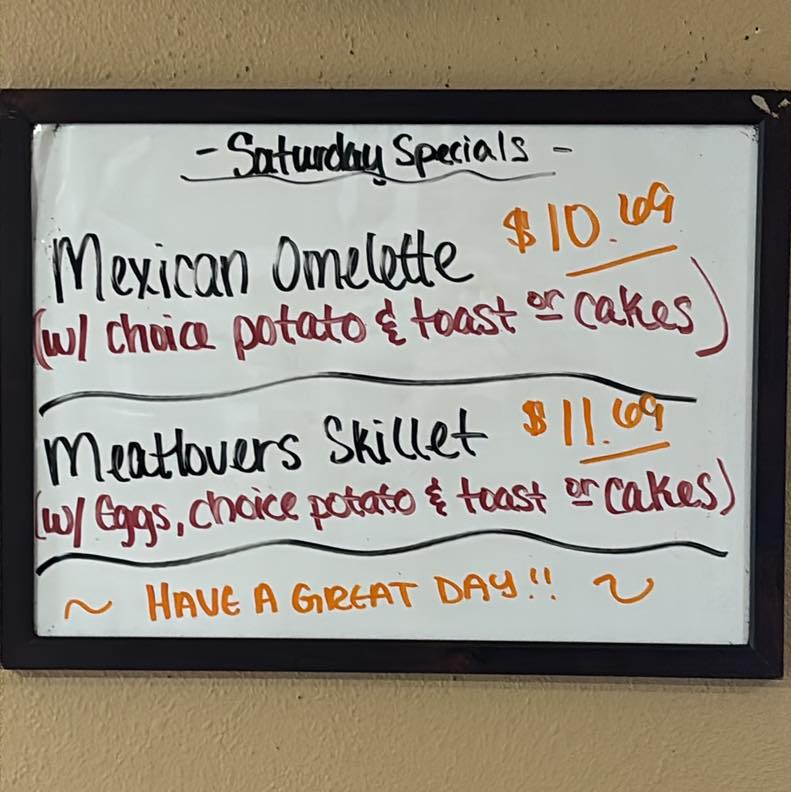 - Saturday Specials -
Mexican Omelette $10.69
(w/ choice potato & toast or cakes)
Meatlovers Skillet $11.69
(w/ Eggs, choice potato & toast or cakes)
~ HAVE A GREAT DAY!! ~